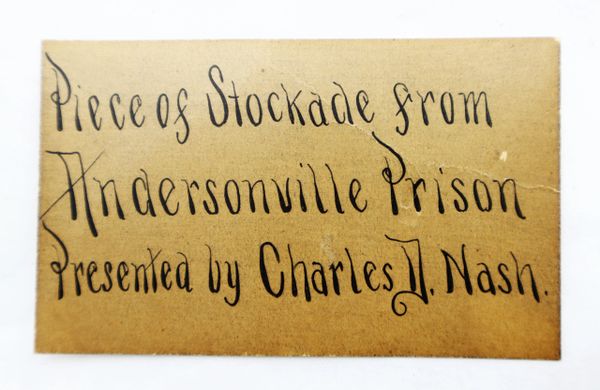 Piece of Stockade from
Andersonville Prison
Presented by Charles D. Nash.